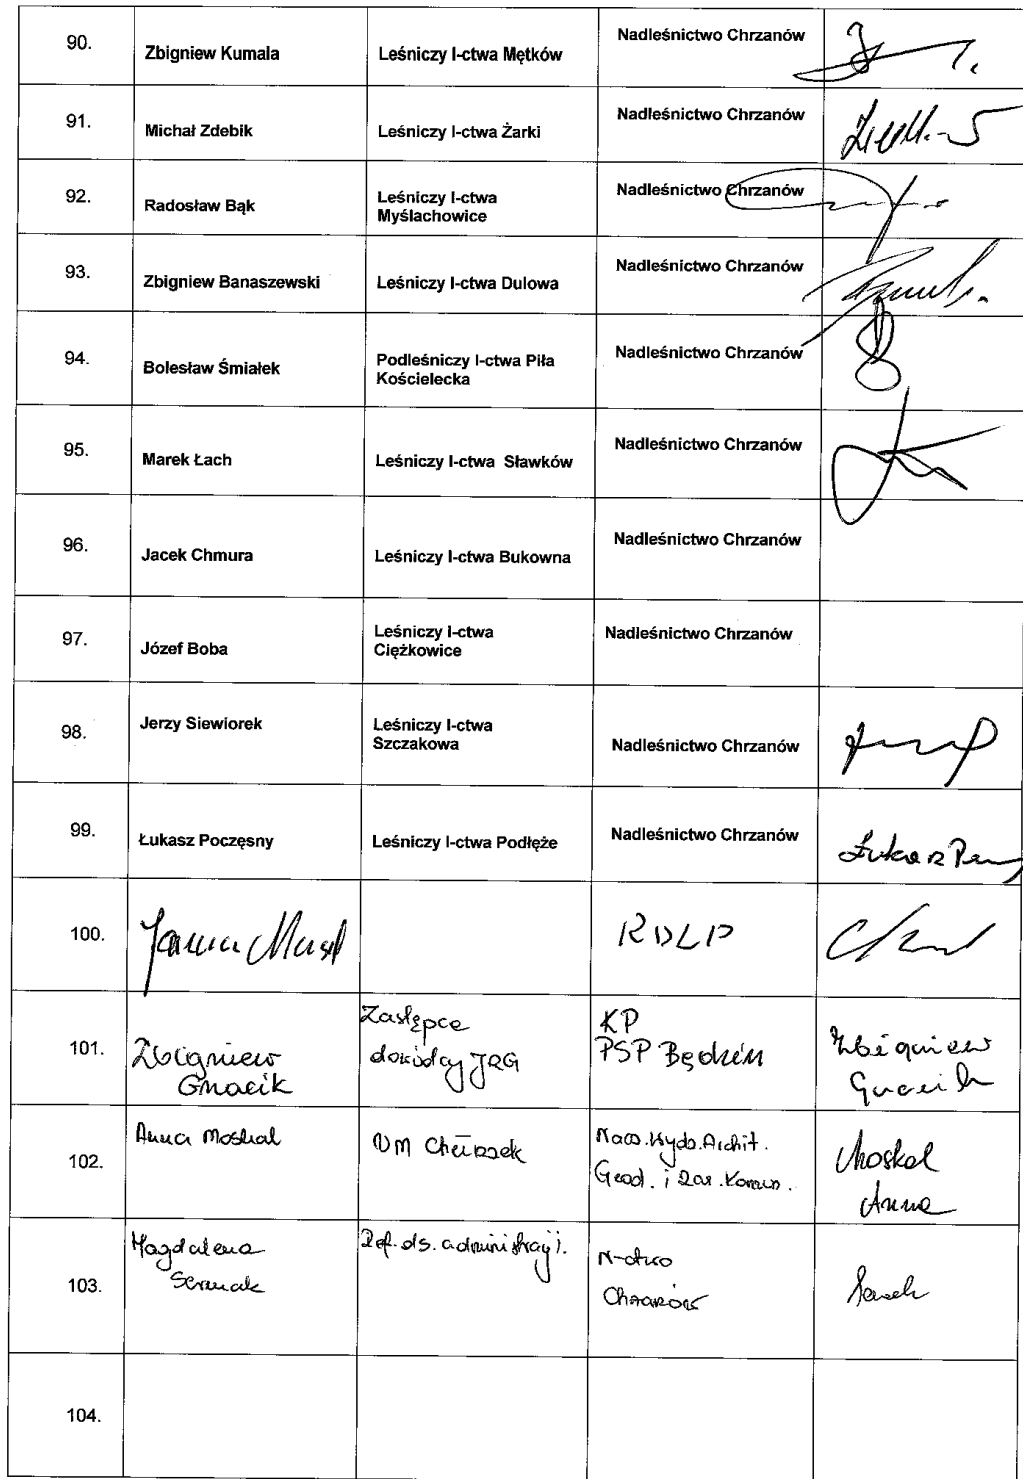 90.
Zbigniew Kumala
Leśniczy l-ctwa Mętków
Nadleśnictwo Chrzanów
91.
Michał Zdebik
Leśniczy l-ctwa Żarki
Nadleśnictwo Chrzanów
92.
Radosław Bąk
Leśniczy l-ctwa
Myślachowice
Nadleśnictwo Chrzanów
93.
Zbigniew Banaszewski
Leśniczy l-ctwa Dulowa
Nadleśnictwo Chrzanów
94.
Bolesław Śmiałek
Podleśniczy l-ctwa Piła
Kościelecka
Nadleśnictwo Chrzanów
95.
Marek Łach
Leśniczy l-ctwa Sławków
Nadleśnictwo Chrzanów
96.
Jacek Chmura
Leśniczy l-ctwa Bukowna
Nadleśnictwo Chrzanów
97.
Józef Boba
Leśniczy l-ctwa
Ciężkowice
Nadleśnictwo Chrzanów
98.
Jerzy Siewiorek
Leśniczy l-ctwa
Szczakowa
Nadleśnictwo Chrzanów
99.
Łukasz Poczęsny
Leśniczy l-ctwa Podłęże
Nadleśnictwo Chrzanów
Łukasz
100.
RDLP
101.
Zbigniew
Gnacik
Zastępca
dowódcy JRG
KP
PSP Będzin
Zbigniew
Gnacik
102.
Anna Moskal
UM Chełmek
Nacz. Wydz. Archit.
Geod. i
Moskal
Anna
103.
Magdalena
Ref. ds. administracji.
N-ctwo
Chrzanów
104.